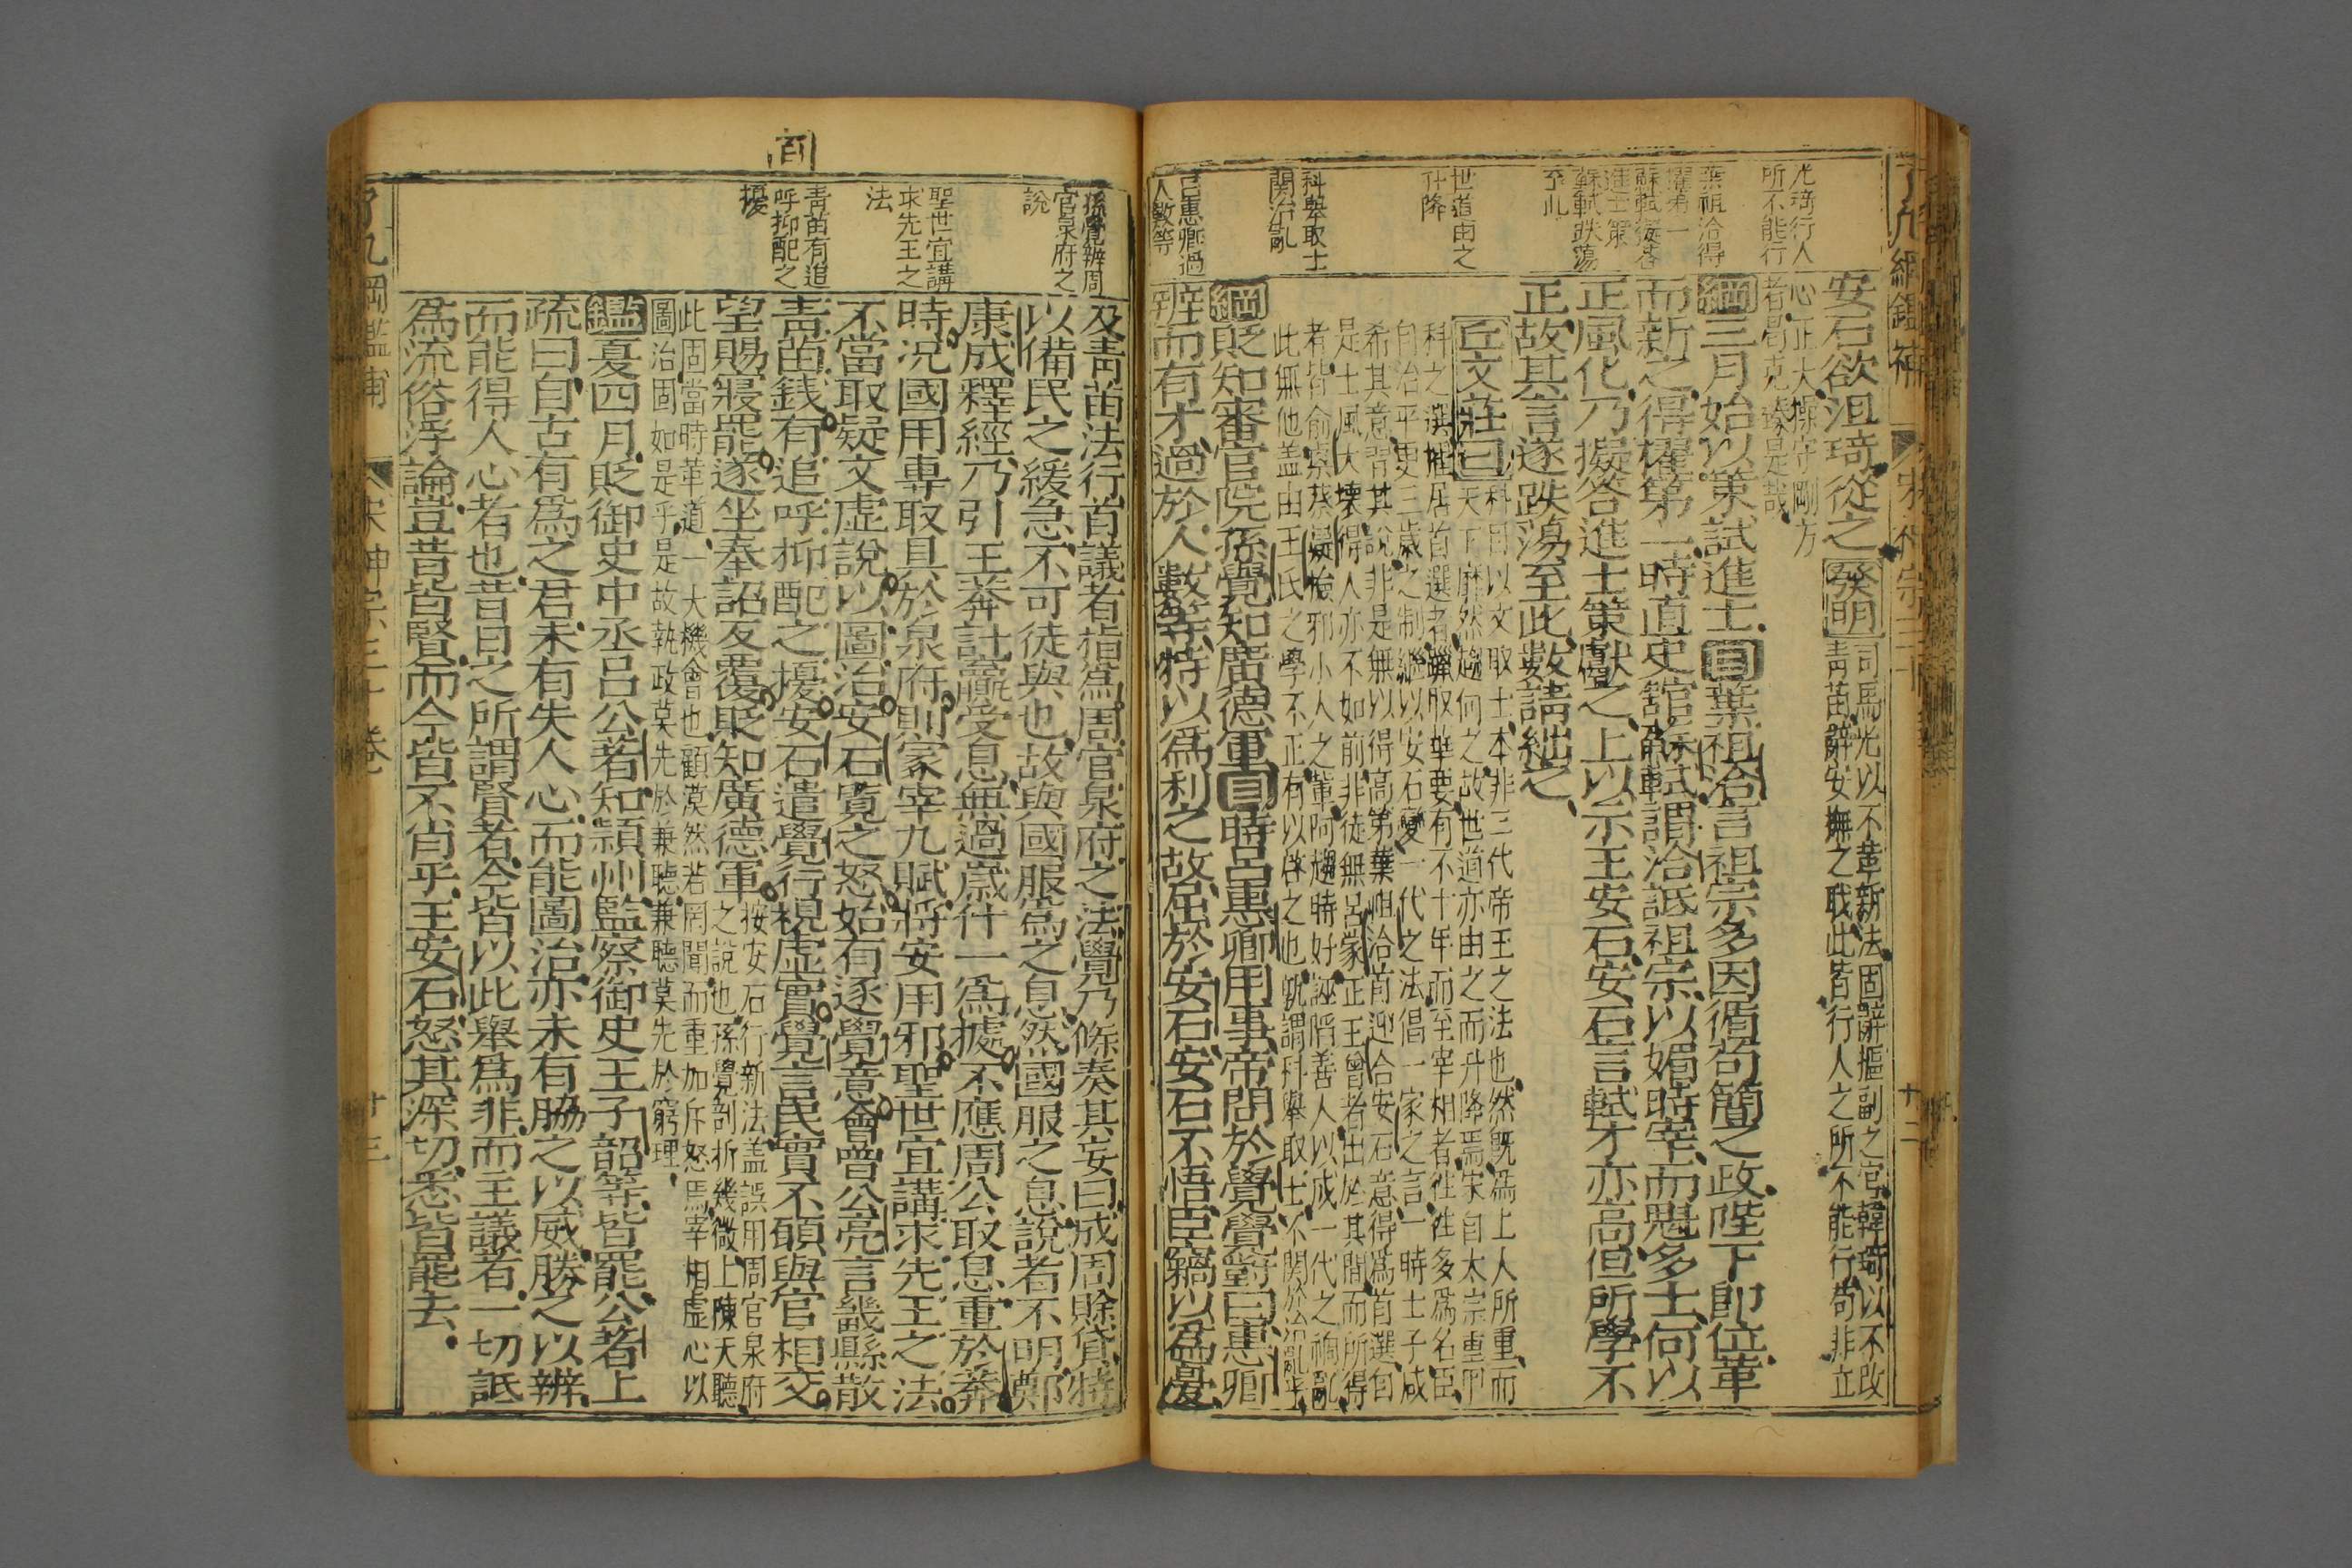 了凡綱鑑補
宋神宗
光琦行人
所不能行
葉祖洽得
擢第一
蘇軾擬答
進士策
蘇軾跌蕩
至此
世道由之
升降
科舉取士
関治亂
呂惠卿過
人數等
安石欲沮琦從之發明
司馬光以不革新法固辭樞副之官韓琦以不改
青苗辭安撫之職此皆行人之所不能行苟非立
心正大操守剛方
者曷克臻是哉
綱三月始以策試進士目葉祖洽言祖宗多因循苟簡之政陛下即位革
而新之得擢第一時直史館蘇軾謂洽詆祖宗以媚時宰而魁多士何以
正風化乃擬答進士策獻之上以示王安石安石言軾才亦高但所學不
正故其言遂跌蕩至此數請絀之
丘文莊曰
科目以文取士本非三代帝王之法也然既為上人所重而
天下靡然趨向之故世道亦由之而升降焉宋自太宗重甲
科之選擢居首選者躐取華要有不十年而至宰相者往往多為名臣
自治平更三歲之制繼以安石變一代之法倡一家之言一時士子咸
希其意習其說非是無以得高第葉祖洽首迎合安石意得為首選自
是士風大壞得人亦不如前非徒無呂蒙正王曾者出於其間而所得
者皆俞栗蔡嶷憸邪小人之輩阿趨時好誣陷善人以成一代之禍亂
此無他盖由王氏之學不正有以啓之也孰謂科舉取士不関於治亂哉
綱貶知審官院孫覺知廣德軍目時呂惠卿用事帝問於覺覺對曰惠卿
辨而有才過於人數等特以為利之故屈於安石安石不悟臣竊以為憂
孫覺辨周
官泉府之
說
聖世宜講
求先王之
法
青苗有追
呼抑配之
擾
及青苗法行首議者指為周官泉府之法覺乃條奏其妄曰成周賒貸特
以備民之緩急不可徒與也故與國服為之息然國服之息說者不明鄭
康成釋經乃引王莽計贏受息無過歲什一為據不應周公取息重於莽
時况國用專取具於泉府則冢宰九賦將安用邪聖世宜講求先王之法
不當取疑文虛說以圖治安石覽之怒始有逐覺意會曾公亮言畿縣散
青苗錢有追呼抑配之擾安石遣覺行視虛實覺言民實不願與官相交
望賜寢罷遂坐奉詔反覆貶知廣德軍
按安石行新法盖誤用周官泉府
之說也孫覺剖析幾微上陳天聽
此固當時革道一大機會也顧漠然若罔聞而重加斥怒焉宰相虛心以
圖治固如是乎是故執政莫先於兼聽兼聽莫先於窮理
鑑夏四月貶御史中丞呂公著知潁州監察御史王子韶等皆罷公著上
疏曰自古有為之君未有失人心而能圖治亦未有脇之以威勝之以辨
而能得人心者也昔日之所謂賢者今皆以此舉為非而主議者一切詆
為流俗浮論豈昔皆賢而今皆不肖乎王安石怒其深切悉皆罷去
了凡綱鑑補
宋神宗三十卷
十三